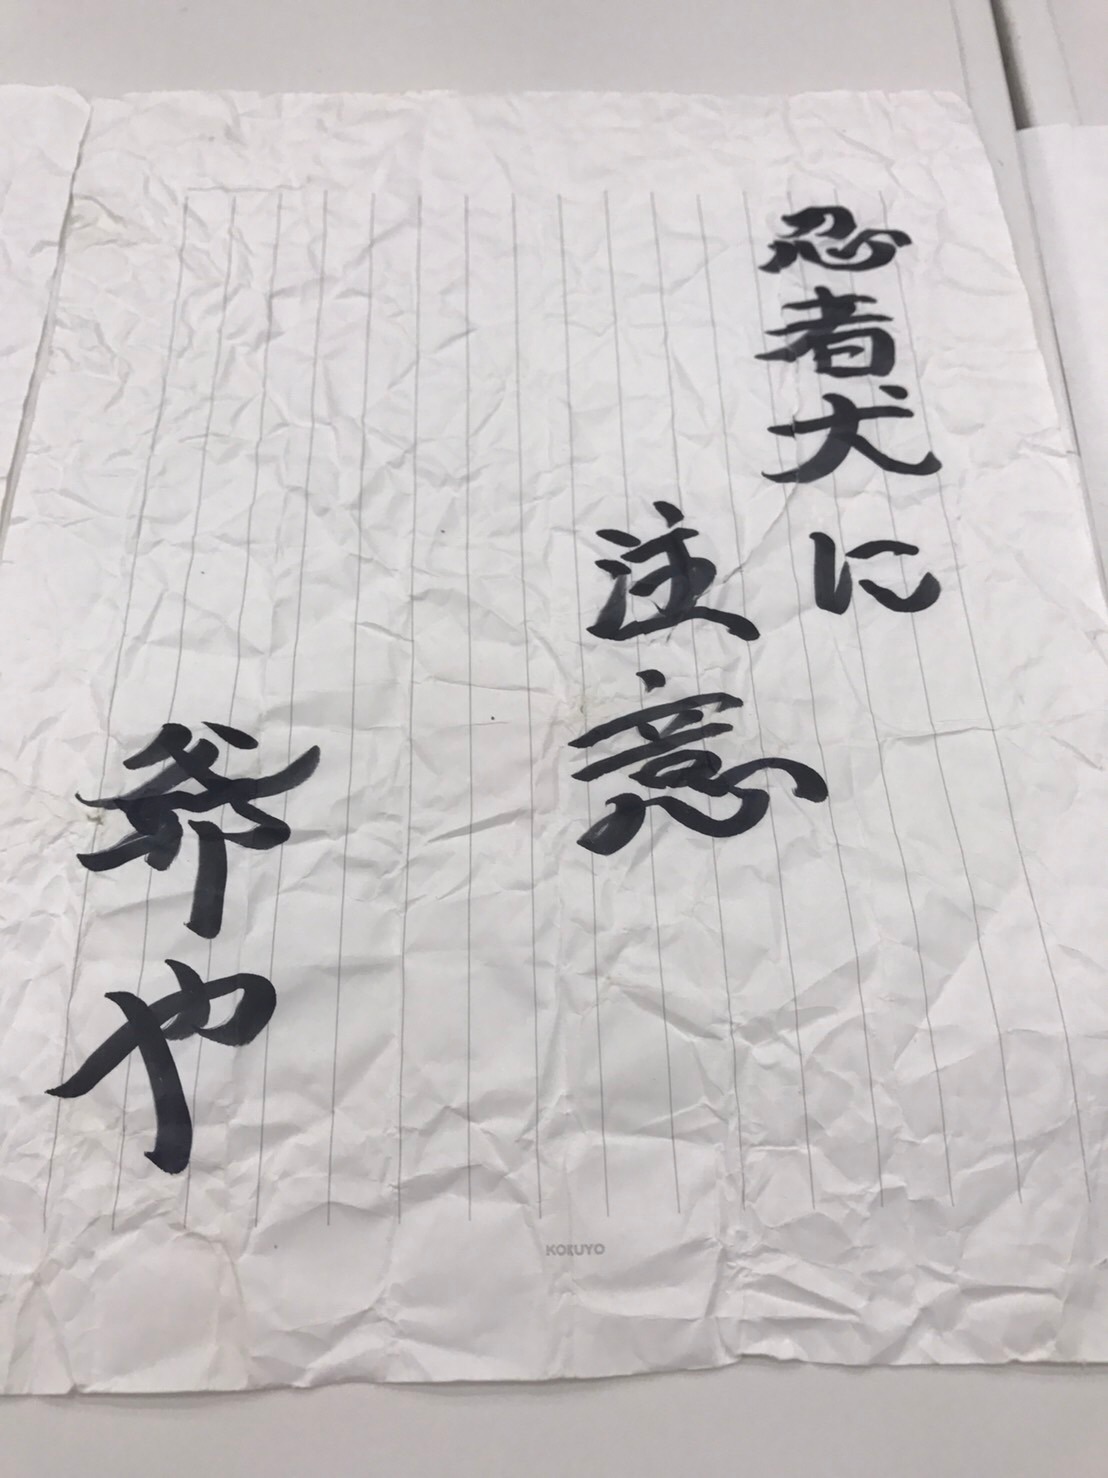 忍者犬に
注意
爺や
KOKUYO